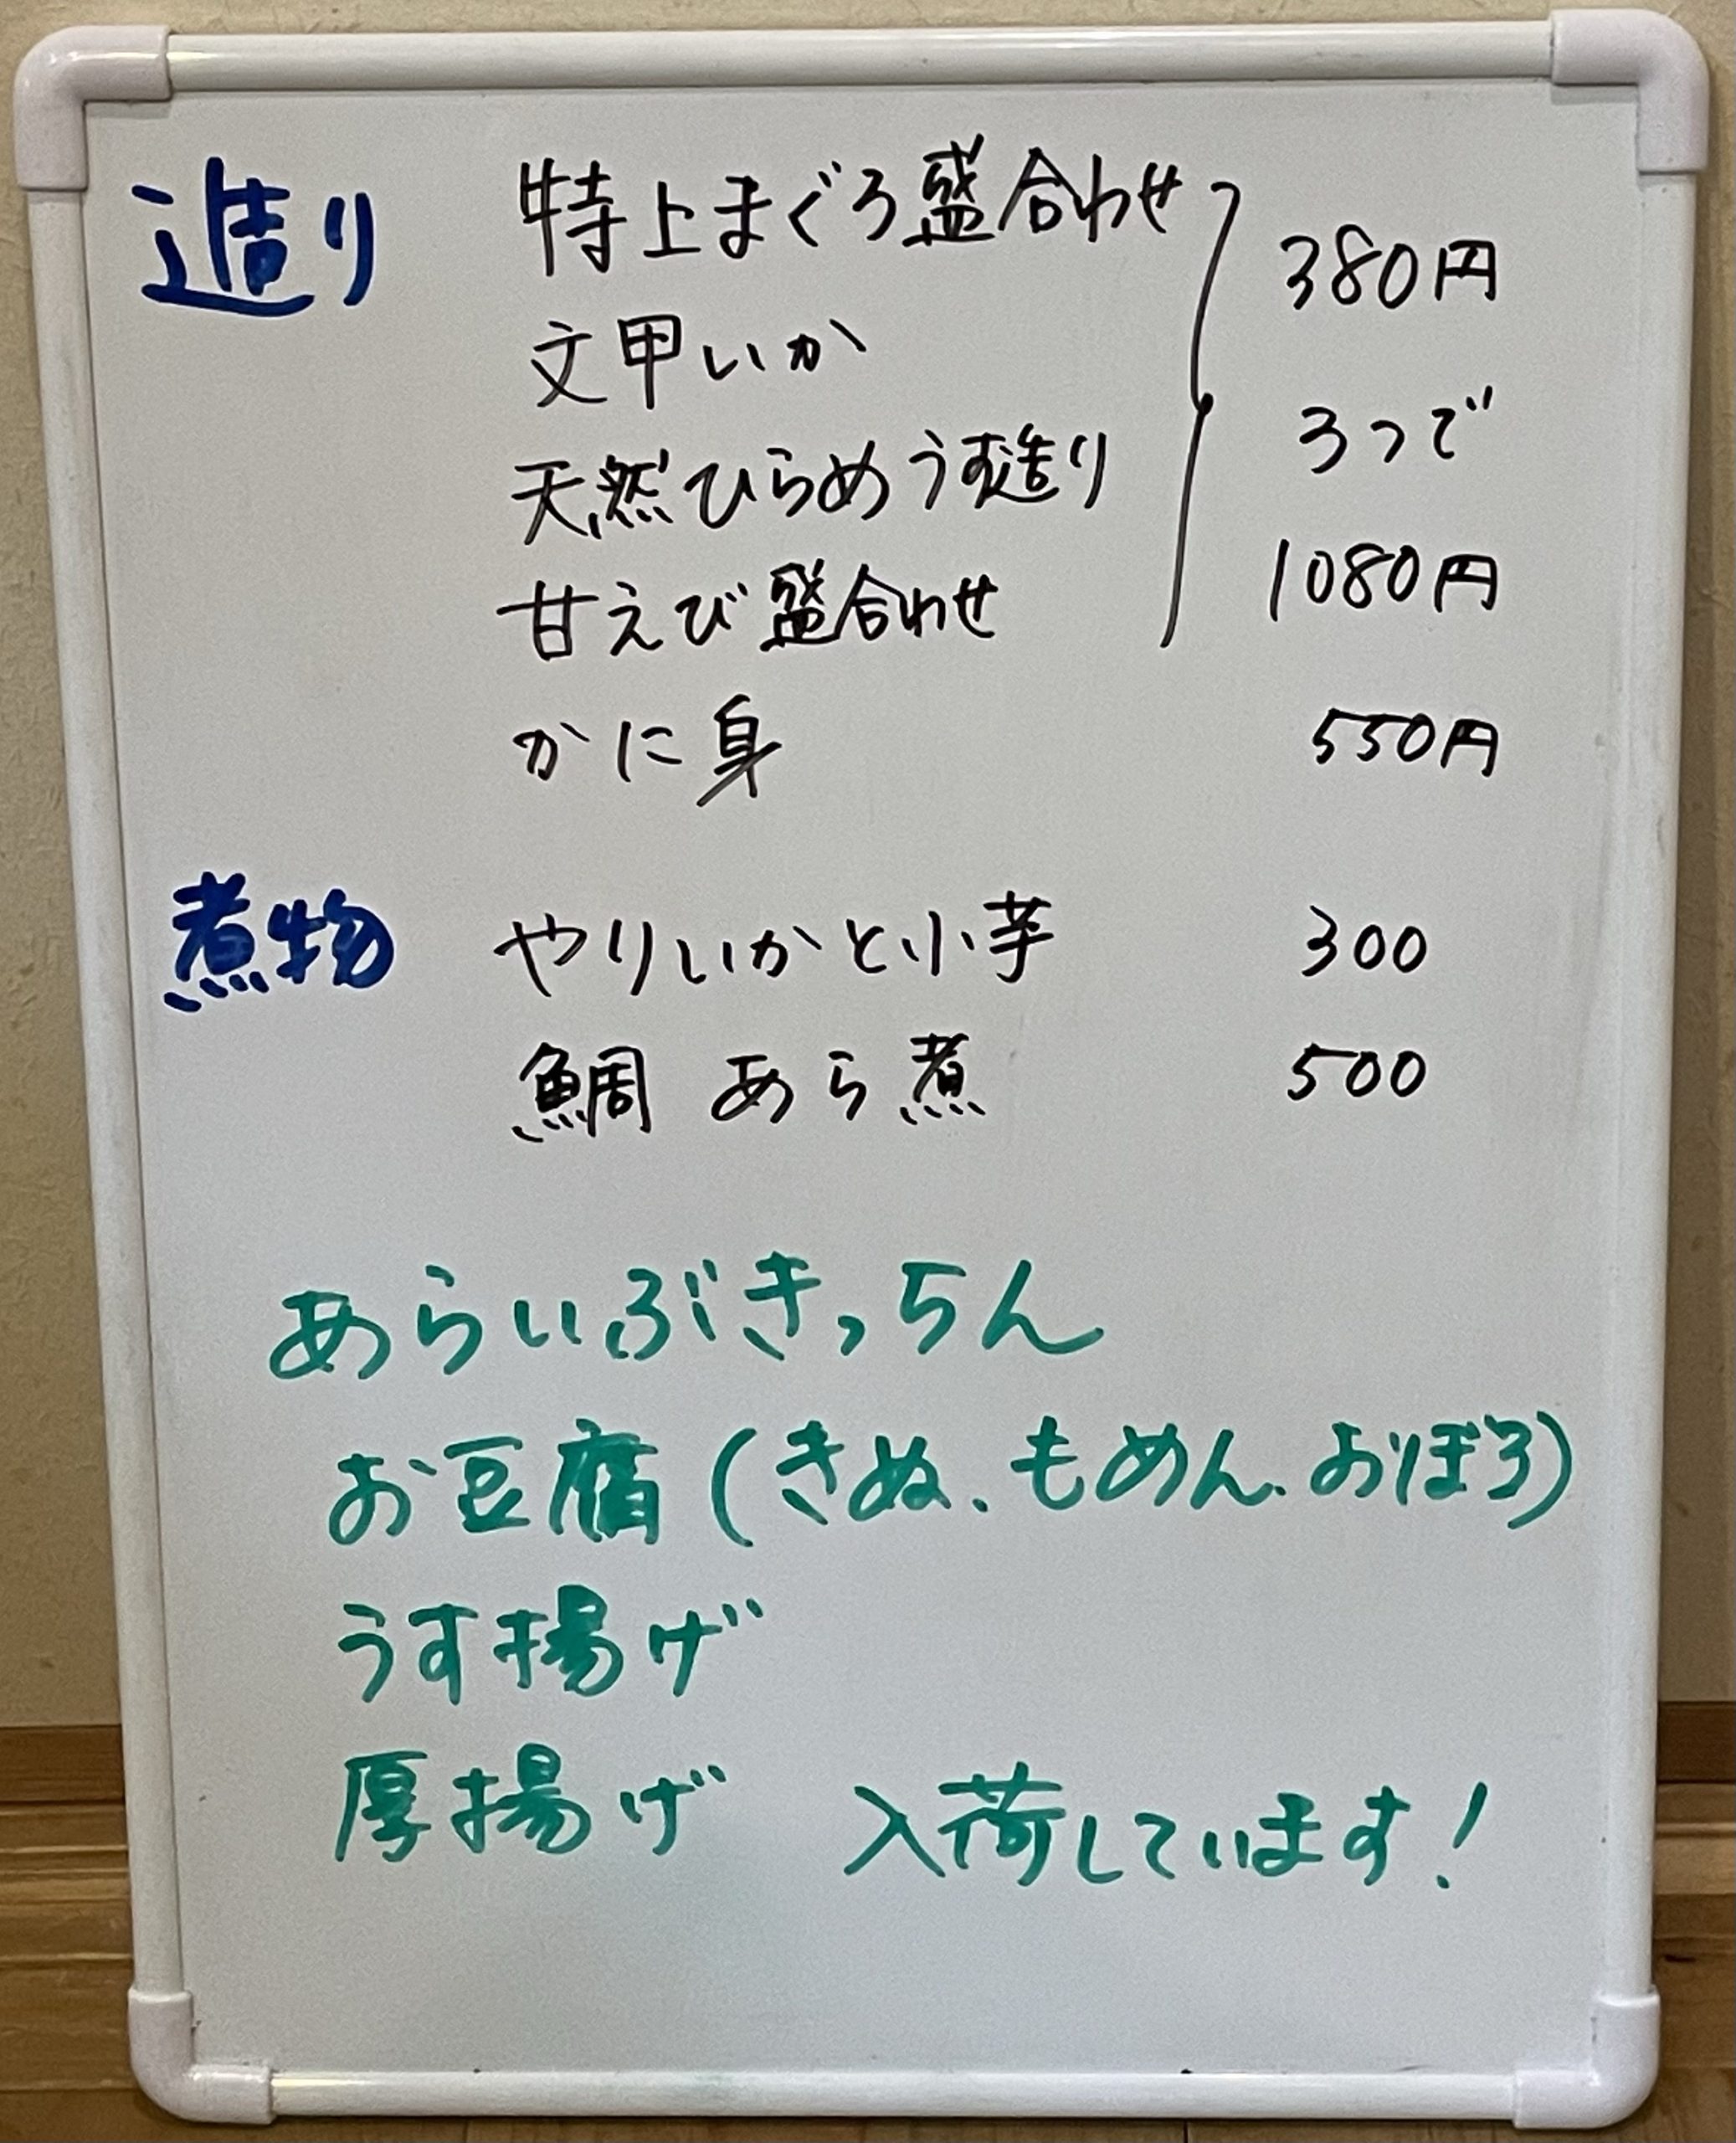 造り 特上まぐろ盛合わせ 380円
文甲いか
天然ひらめうす造り 3つで
甘えび盛合わせ 1080円
かに身 550円
煮物 やりいかと小芋 300
鯛 あら煮 500
あらいぶきっちん
お豆腐(きぬ、もめん、おぼろ)
うす揚げ
厚揚げ 入荷しています!